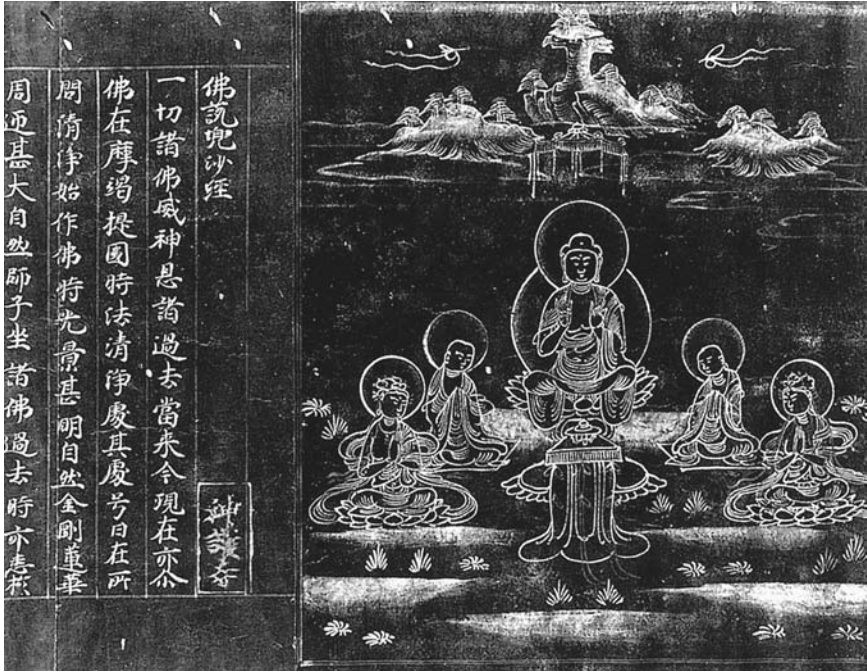 佛說兜沙経
一切諸佛威神恩諸過去當来今現在亦尒
神護寺
佛在摩竭提國時法清淨處其處号曰在所
問清淨始作佛時光景甚明自然金剛蓮華
周迊甚大自然師子坐諸佛過去時亦悉於